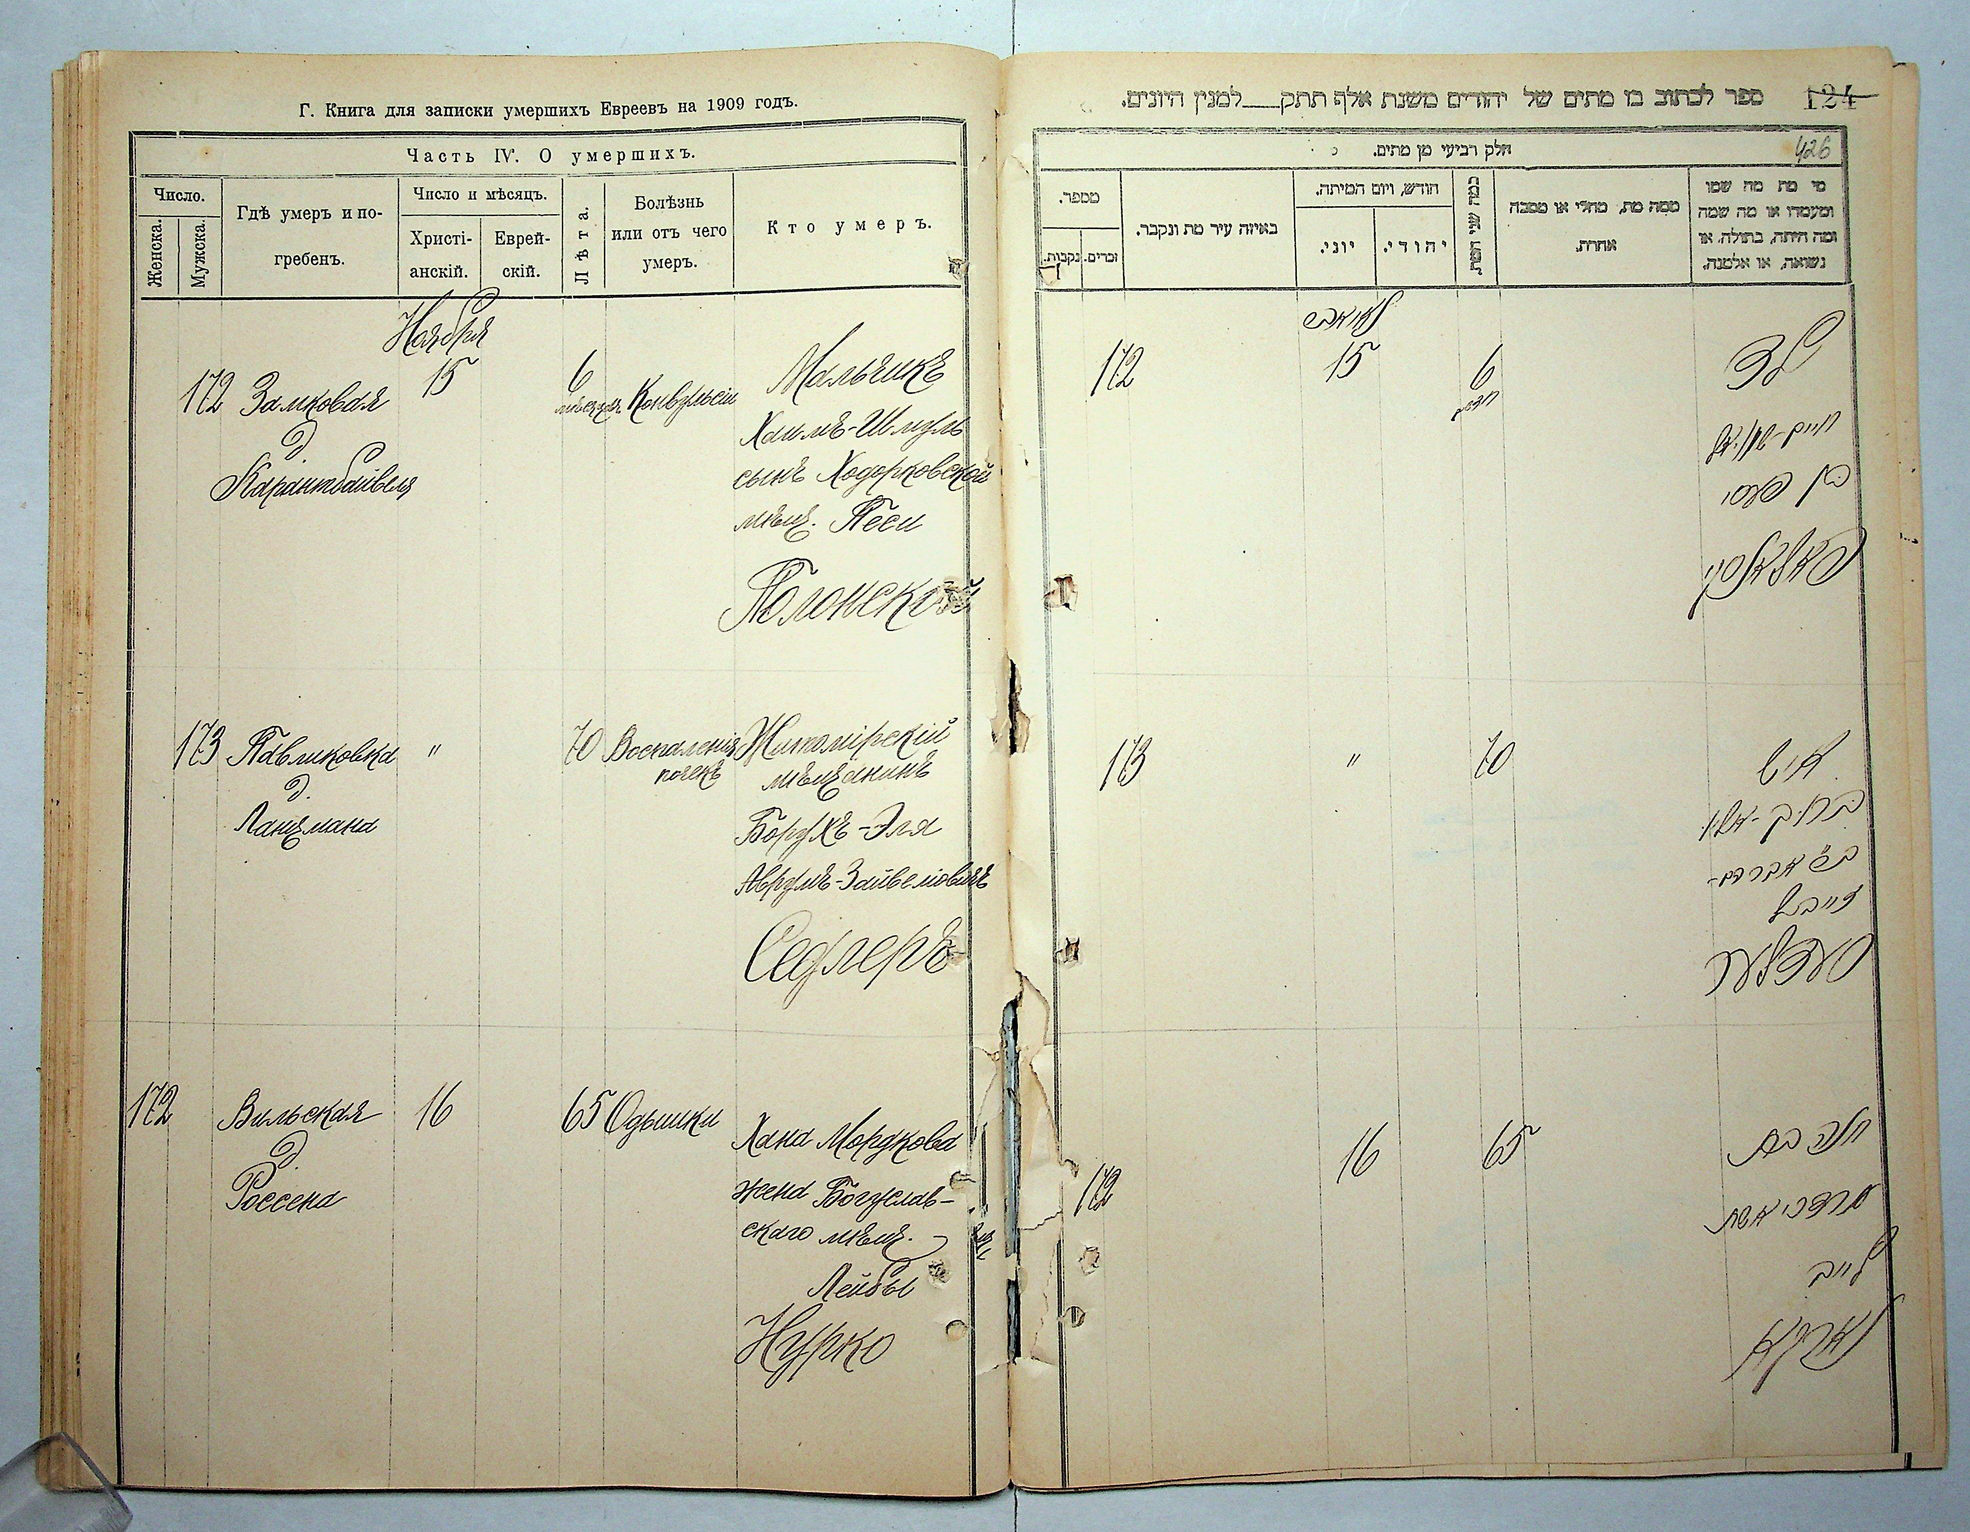 Г. Книга для записки умершихъ Евреевъ на 1909 годъ.
Часть IV. О умершихъ.
Число.
Женска.
Мужска.
Гдѣ умеръ и по-
гребенъ.
Число и мѣсяцъ.
Христі-
анскій.
Еврей-
скій.
Лѣта.
Болѣзнь
или отъ чего
умеръ.
Кто умеръ.
Ноября
172 Замковая 15 6 Конвульсіи Мальчикъ
д. мѣсяц.
Карантбайвеля
Хаимъ-Шмуль
сынъ Ходорковской
мѣщ. Песи
Полонской
173 Павликовка " 70 Воспаленія Житомірскій
почекъ мѣщанинъ
д.
Ланцмана
Борухъ-Эля
Аврумъ-Зайвеловичъ
Седлеръ
172 Вильская 16 65 Одышки Хана Мордкова
д.
Россена
жена Богуслав-
скаго мѣщ.
Лейбы
Нурко
ספר לכתוב בו מתים של יהודים משנת אלף תתק___למנין היונים.
124
426
חלק רביעי מן מתים.
מי מת מה שמו
ומעמדו או מה שמה
ומה היתה, בתולה, או
נשואה, או אלמנה.
ממה מת, מחלי או מסבה
אחרת.
כמה שני המת.
חודש, ויום המיתה.
יהודי.
יוני.
באיזה עיר מת ונקבר.
מספר.
זכרים.
נקבות.
נאיאבר
ילד 6 15 172
חדשים
חיים-שמואל
בן פעסי
פאלאנסקי
איש 70 " 173
ברוך-אלי'
ב"ר אברהם-
זייבעל
סעדלער
חנה בת 65 16 172
מרדכי אשת
לייב
נארקא